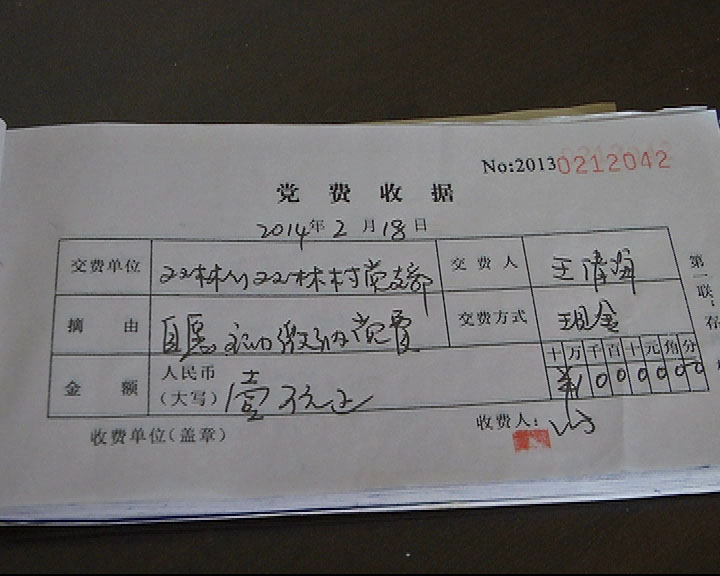 No:2013 0212042
党费收据
2014年2月18日
交费单位 双林 双林村党支部 交费人 王
摘由 自愿 缴纳党费 交费方式 现金
金额 人民币(大写) 壹万元正 十万千百十元角分 ¥1000000
收费单位(盖章) 收费人:
第一联:存